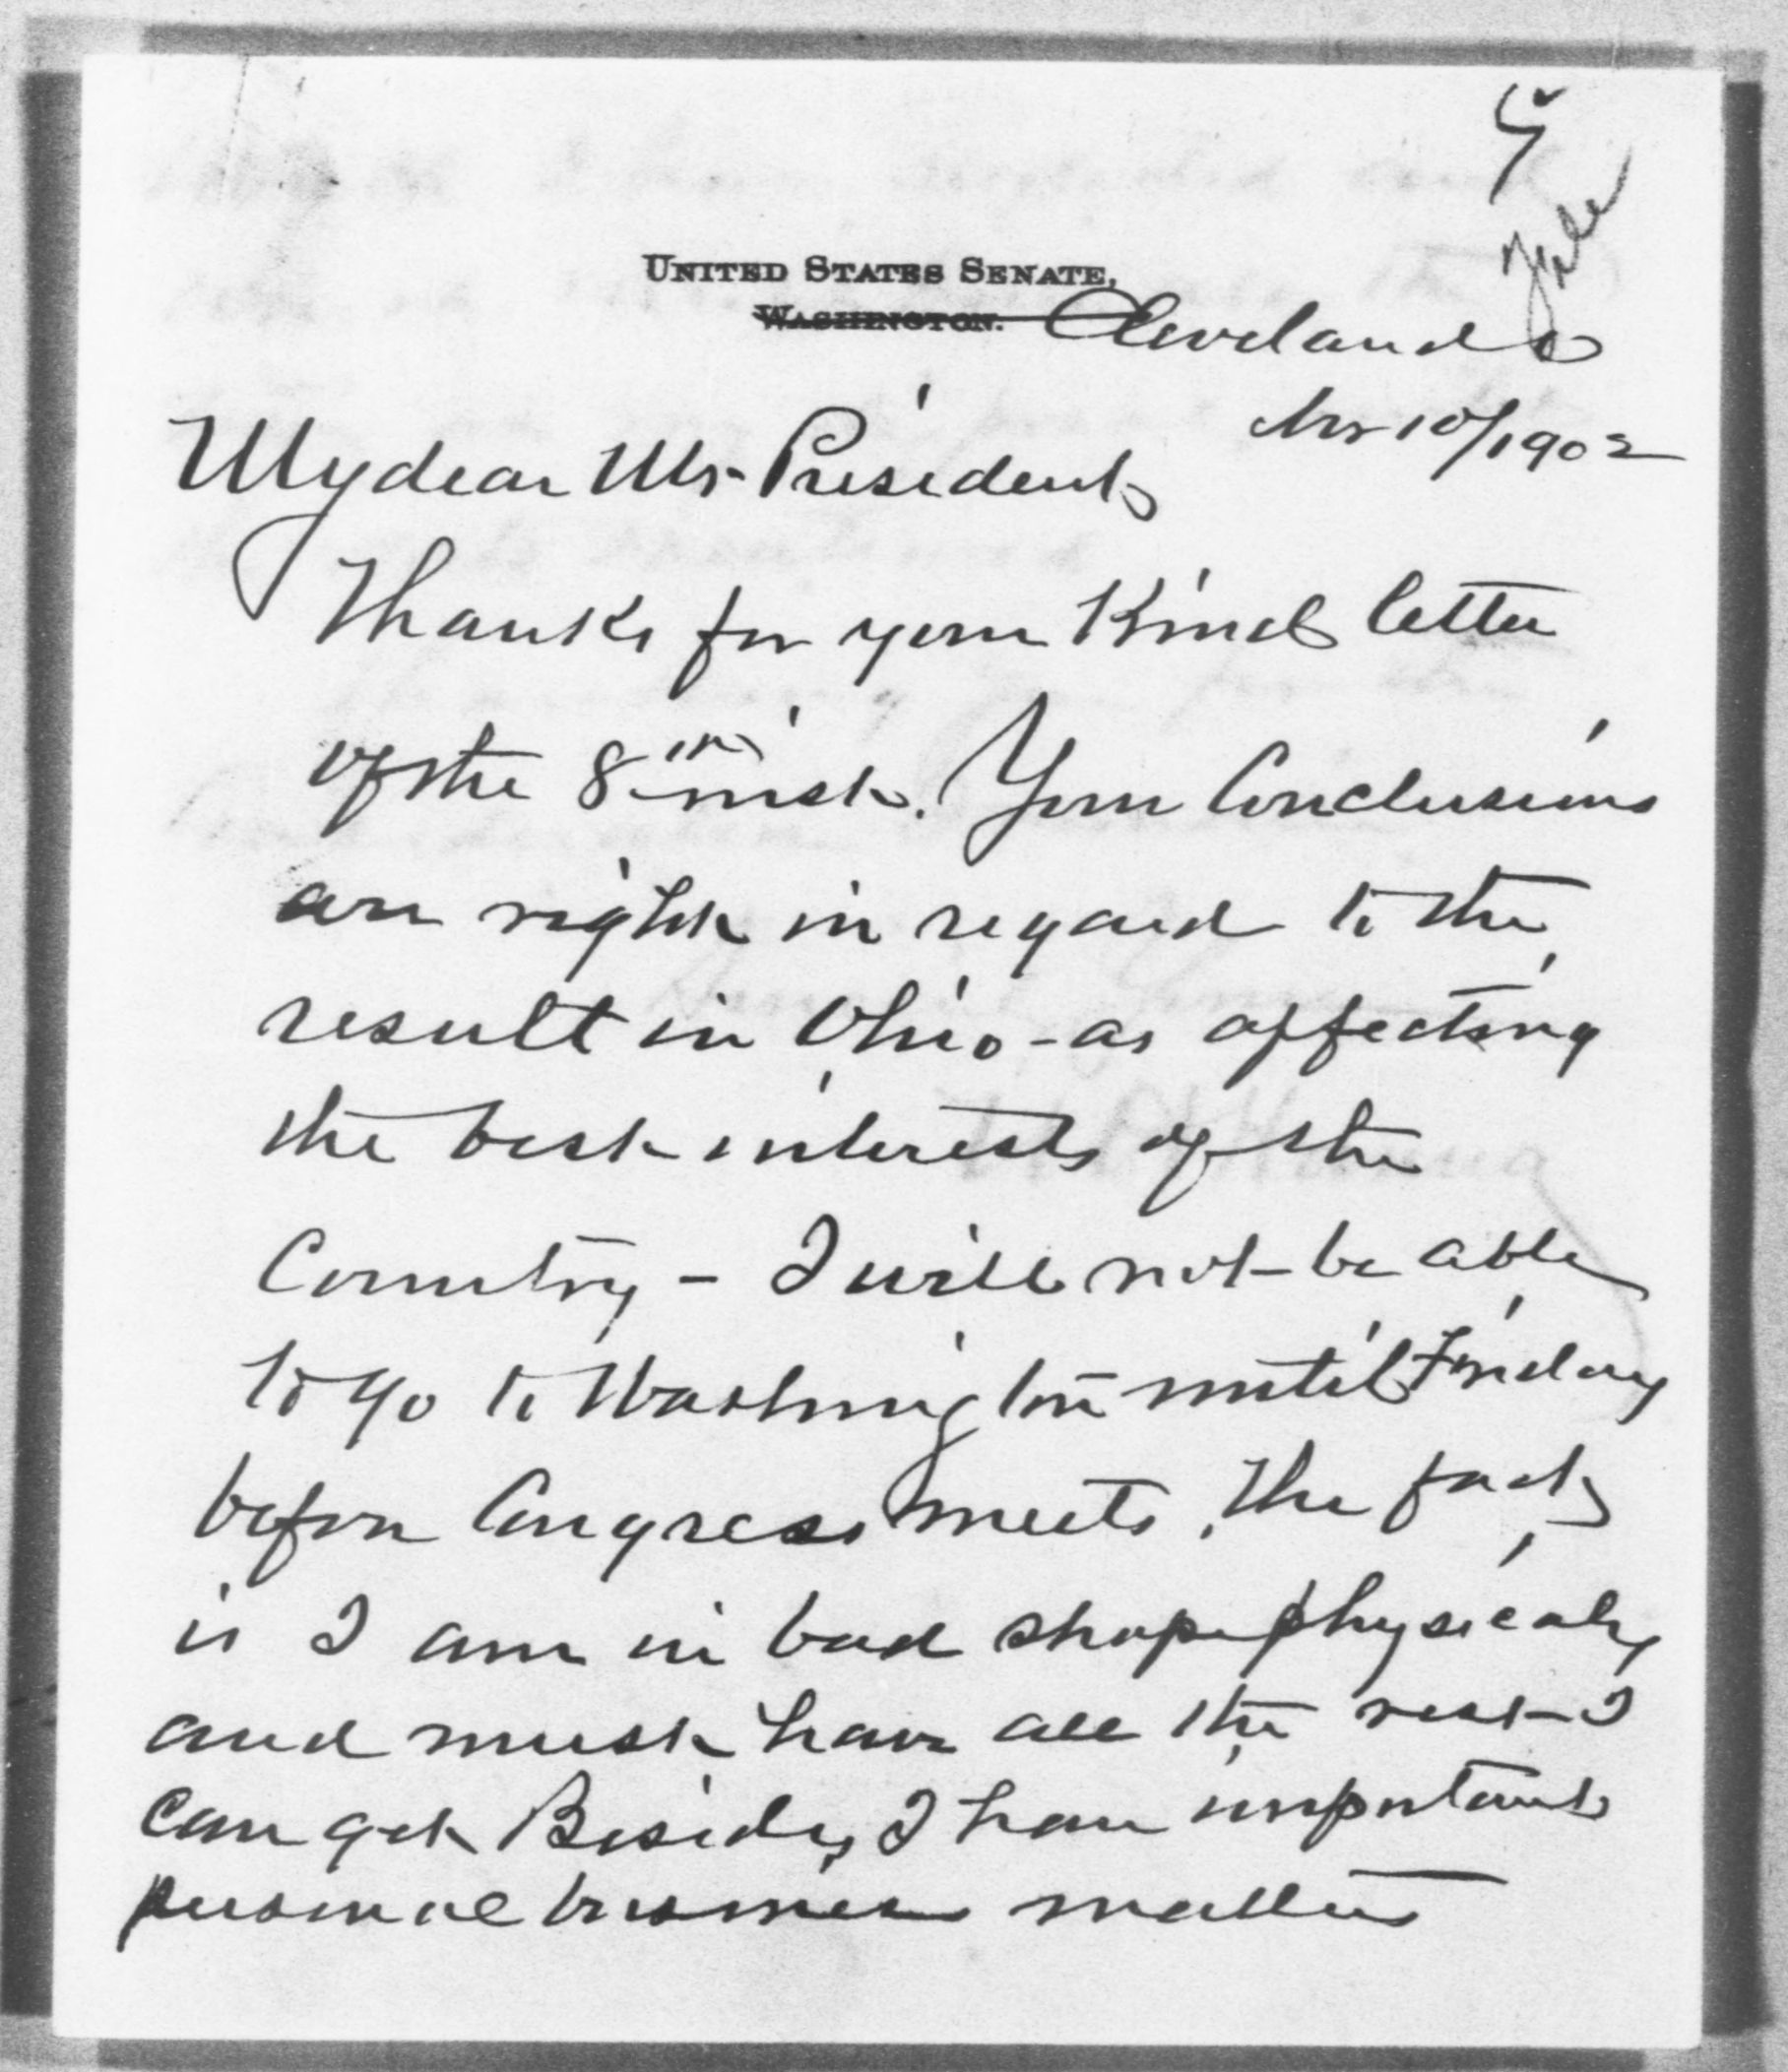 UNITED STATES SENATE,
WASHINGTON. Cleveland O
Nov 10/1902
My dear Mr. President,
Thanks for your Kind letter
of the 8th inst. Your Conclusions
are right in regard to the
result in Ohio - as affecting
the best interests of the
Country - I will not be able
to go to Washington until Friday
before Congress meets. The fact
is I am in bad shape physicaly
and must have all the rest I
can get Besides, I have important
personal business matters